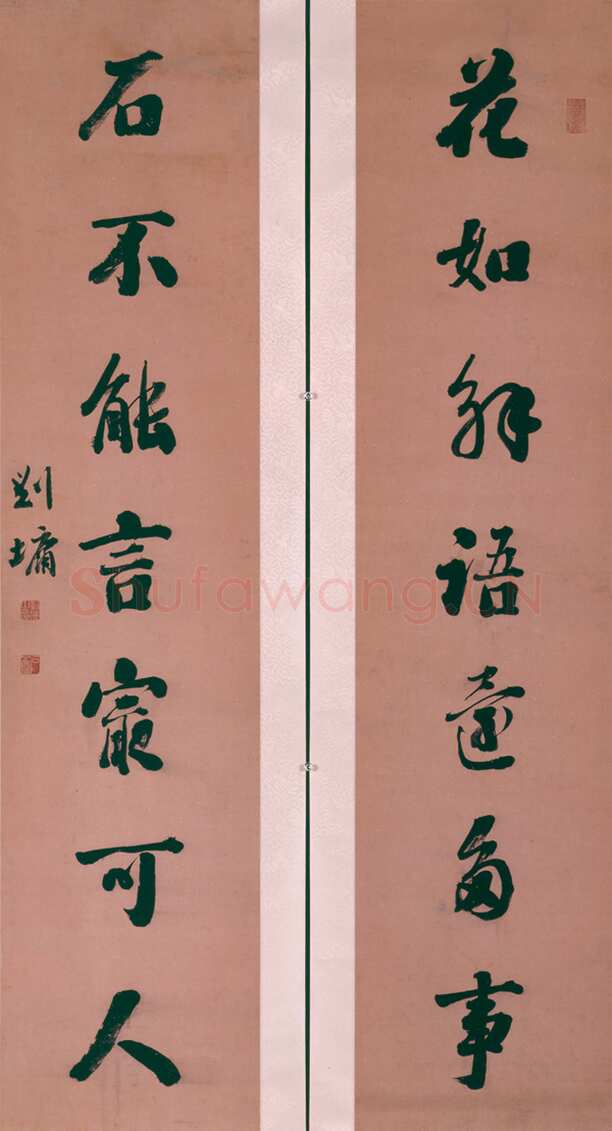 花如解語還多事
石不能言最可人
劉墉
Shufawang.CN